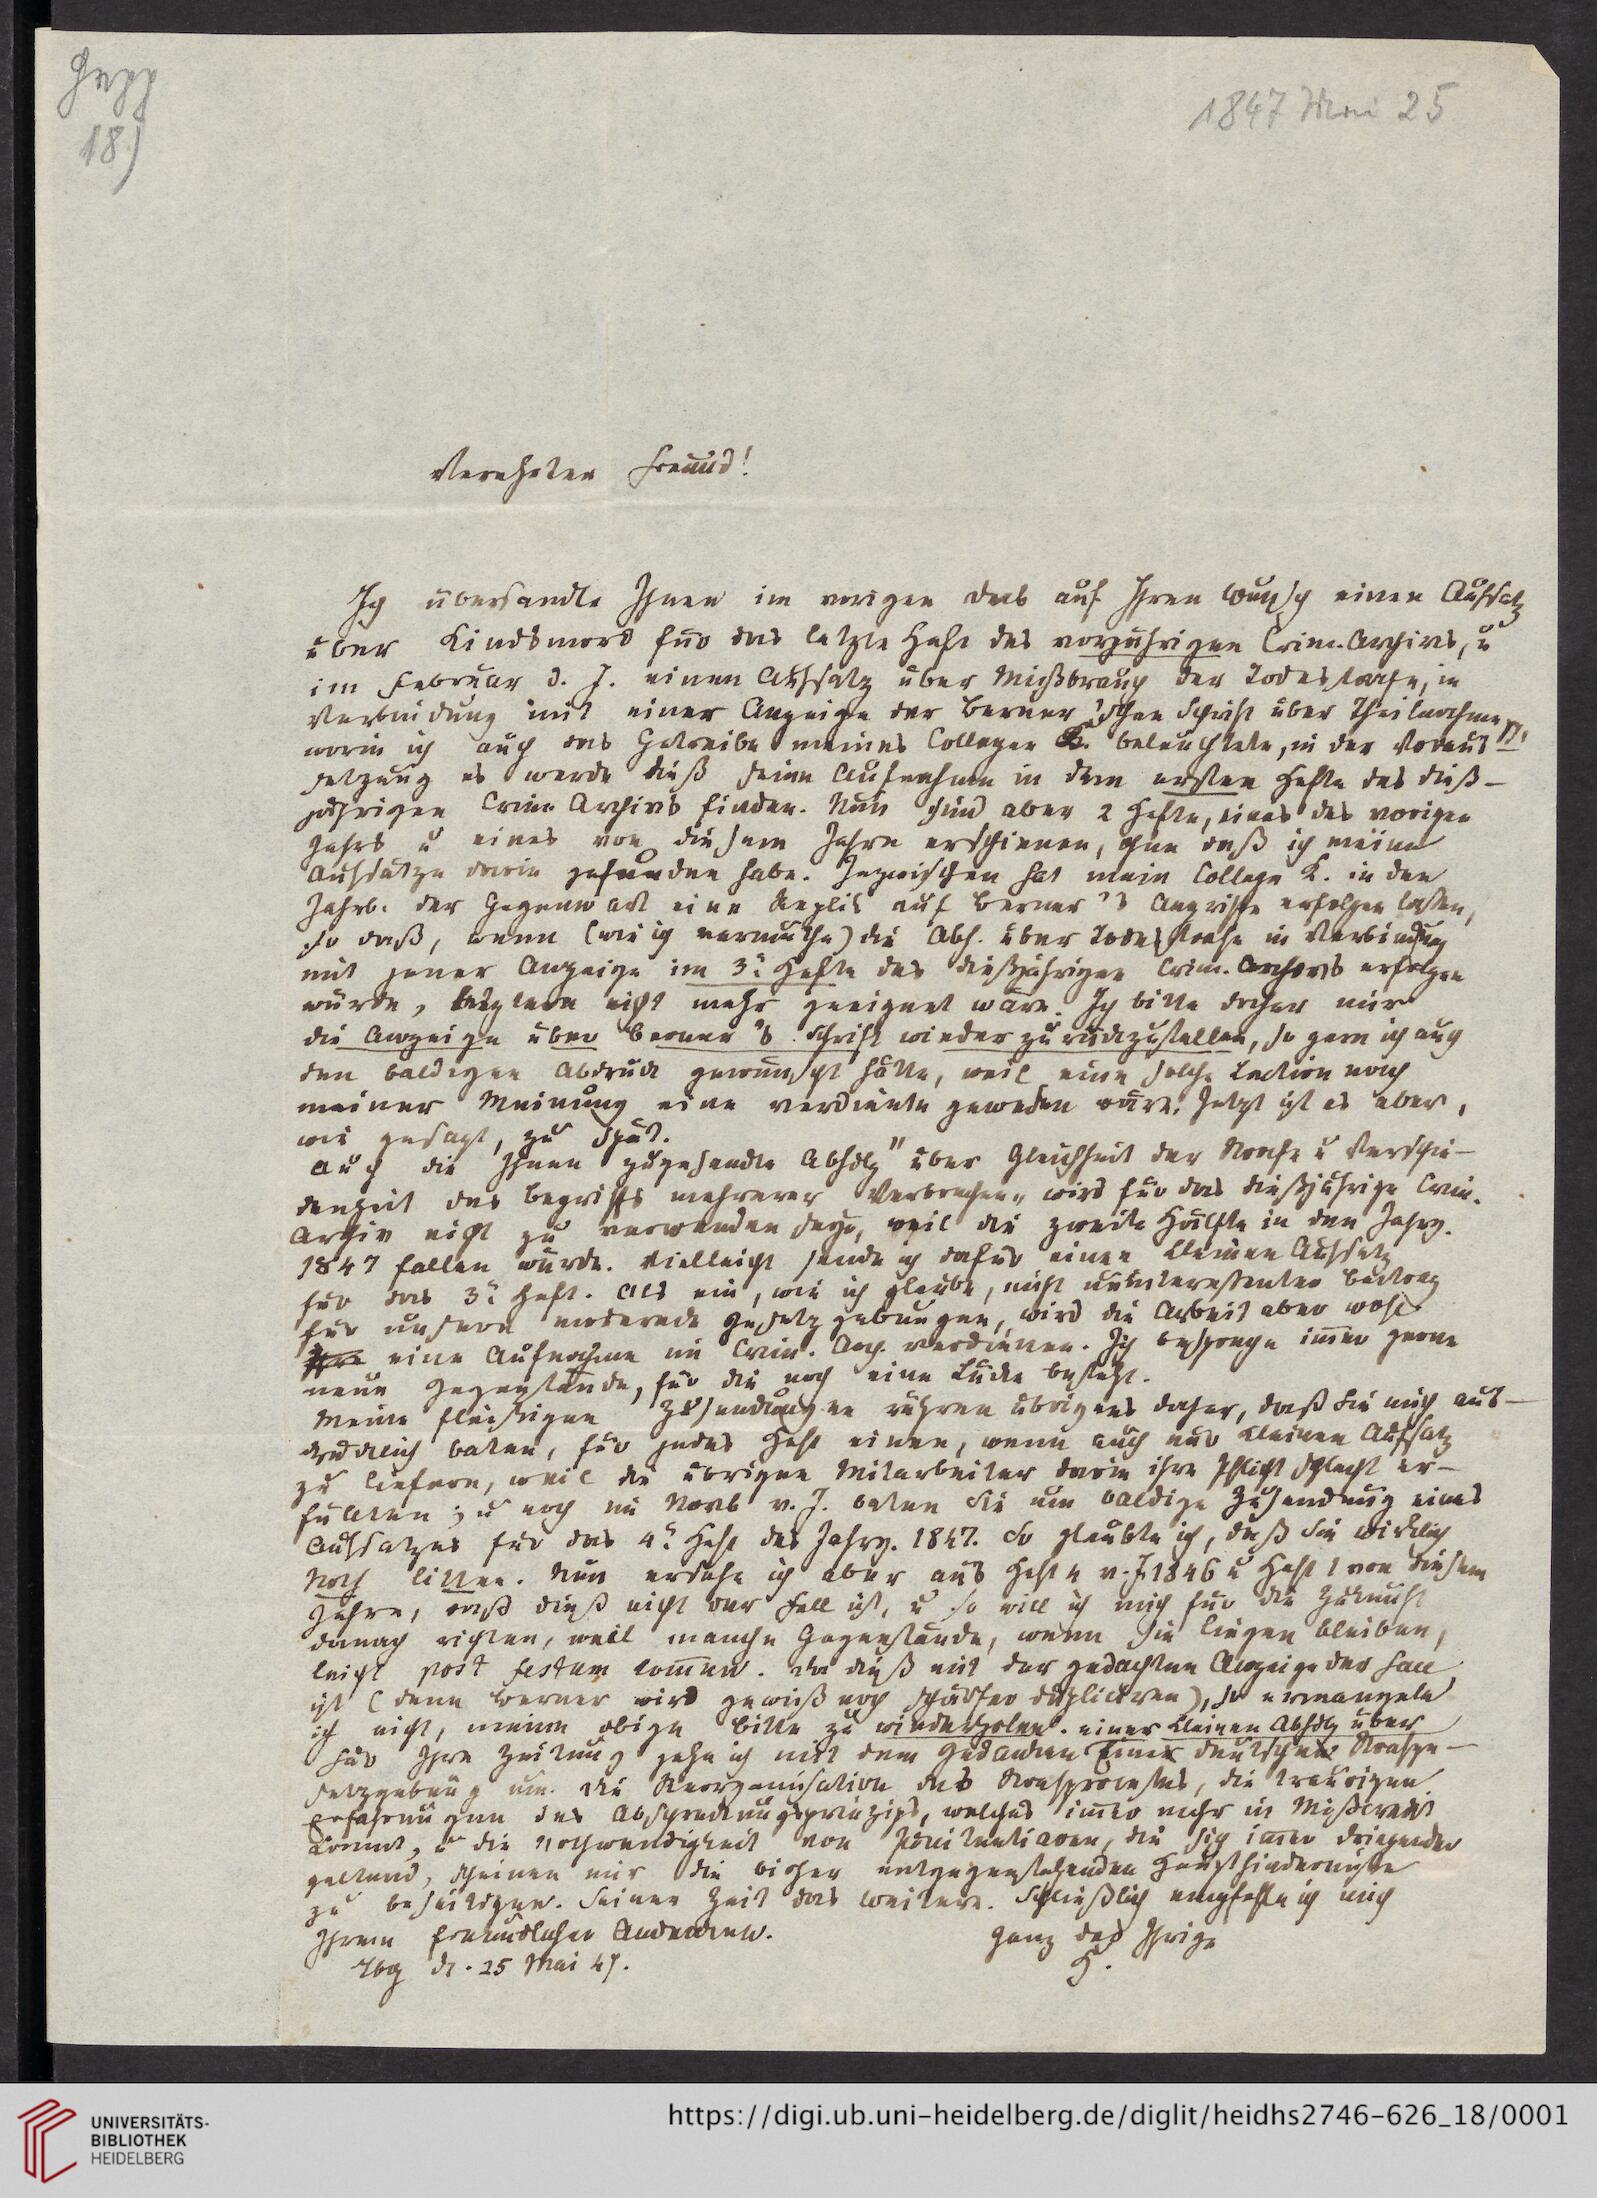 Hepp
18)
1847 Mai 25
Verehrter Freund!
Ich übersandte Ihnen im vorigen Decb auf Ihren Wunsch einen Aufsatz
über Kindsmord für das letzte Heft des vorjährigen Crim. Archivs, u
im Februar d. J. einen Aufsatz über Mißbrauch der Todesstrafe, in
Verbindung mit einer Anzeige der Berner'schen Schrift über Theilnahme
worin ich auch das Getreibe meines Collegen K. beleuchtete, in der Voraus
setzung es werde dieß seine Aufnahme in dem ersten Hefte des dieß-
jährigen Crim Archivs finden. Nun sind aber 2 Hefte, eines des vorigen
Jahrs u eines von diesem Jahre erschienen, ohne daß ich meine
Aufsätze darin gefunden habe. Inzwischen hat mein College K. in den
Jahrb. der Gegenwart eine Replik auf Berner's Angriffe erfolgen lassen,
so daß, wenn (wie ich vermuthe) die Abh. über Todesstrafe in Verbindung
mit jener Anzeige im 3t Hefte des dießjährigen Crim. Archivs erfolgen
würde, letztere nicht mehr geeignet wäre. Ich bitte daher mir
die Anzeige über Berner's Schrift wieder zurückzustellen, so gern ich auch
den baldigen Abdruck gewünscht hätte, weil eine solche Lection nach
meiner Meinung eine verdiente gewesen wäre. Jetzt ist es aber,
wie gesagt, zu spät.
Auch die Ihnen zugesandte Abhdlg "über Gleichheit der Strafe u Verschie-
denheit des Begriffs mehrerer Verbrechen" wird für das dießjährige Crim.
Archiv nicht zu verwenden seyn, weil die zweite Hälfte in den Jahrg.
1847 fallen würde. Vielleicht sende ich dafür einen kleinen Aufsatz
für das 3t Heft. Als ein, wie ich glaube, nicht uninteressanter Beitrag
für unsere moderne Gesetzgebungen, wird die Arbeit aber wohl
eine Aufnahme im Crim. Arch. verdienen. Ich bespreche immer gerne
neue Gegenstände, für die noch eine Lücke besteht.
Meine fleißigen Zusendungen rühren übrigens daher, daß Sie mich aus-
drücklich baten, für jedes Heft einen, wenn auch nur kleinen Aufsatz
zu liefern, weil die übrigen Mitarbeiter darin ihre Pflicht schlecht er-
füllten; u noch im Novb v. J. baten Sie um baldige Zusendung eines
Aufsatzes für das 4t Heft des Jahrg. 1847. So glaubte ich, daß Sie wirklich
Noth litten. Nun ersehe ich aber aus Heft 4 v. J. 1846 u Heft 1 von diesem
Jahre, daß dieß nicht der Fall ist, u so will ich mich für die Zukunft
danach richten, weil manche Gegenstände, wenn sie liegen bleiben,
leicht post festum kommen. Da dieß mit der gedachten Anzeige der Fall
ist (denn Berner wird gewiß noch schärfer dupliciren), so ermangele
ich nicht, meine obige Bitte zu wiederholen. einer kleinen Abhdlg über
Für Ihre Zeitung gehe ich mit dem Gedanken einer deutschen Strafge-
setzgebung um. Die Reorganisation des Strafprocesses, die traurigen
Erfahrungen des Abschreckungsprinzips, welches immer mehr in Mißcredit
kommt, u die Nothwendigkeit von Pönitentiaren, die sich immer dringender
geltend, scheinen mir die bisher entgegenstehenden Haupthindernisse
zu beseitigen. Seiner Zeit das weitere. Schließlich empfehle ich mich
Ihrem freundlichen Andenken.
Ganz der Ihrige
H.
Tbg d. 25 Mai 47.
UNIVERSITÄTS-
BIBLIOTHEK
HEIDELBERG
https://digi.ub.uni-heidelberg.de/diglit/heidhs2746-626_18/0001